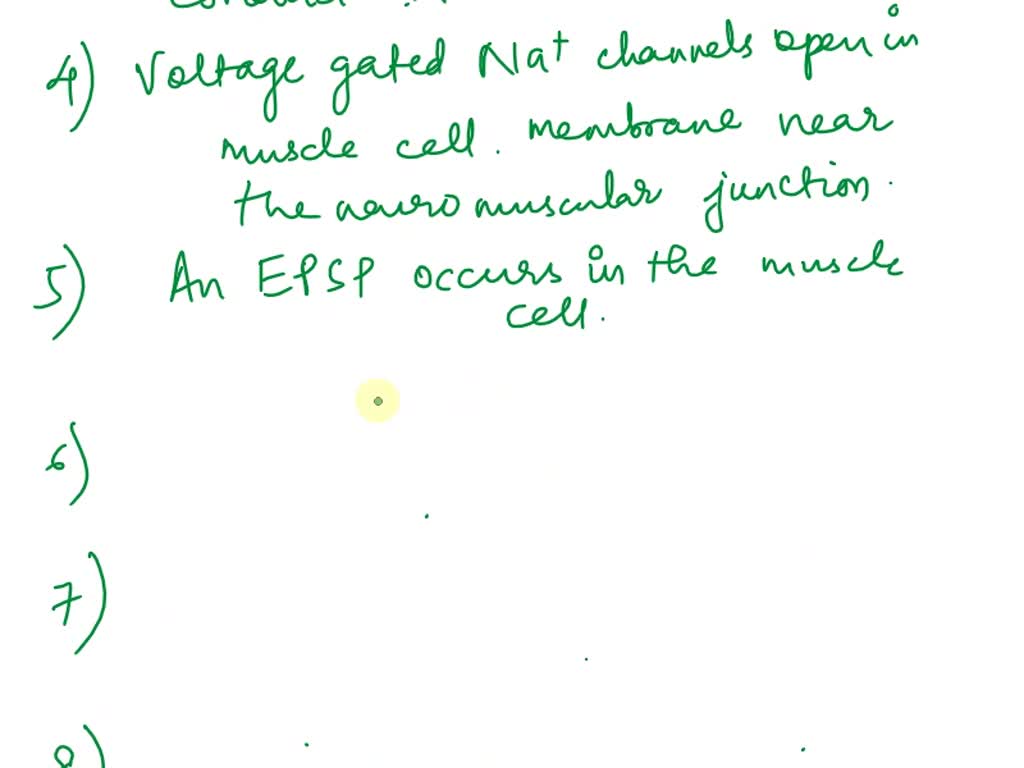 4) Voltage gated Na+ channels open in
muscle cell. membrane near
the neuromuscular junction.
5) An EPSP occurs in the muscle
cell.
6)
7)
8)